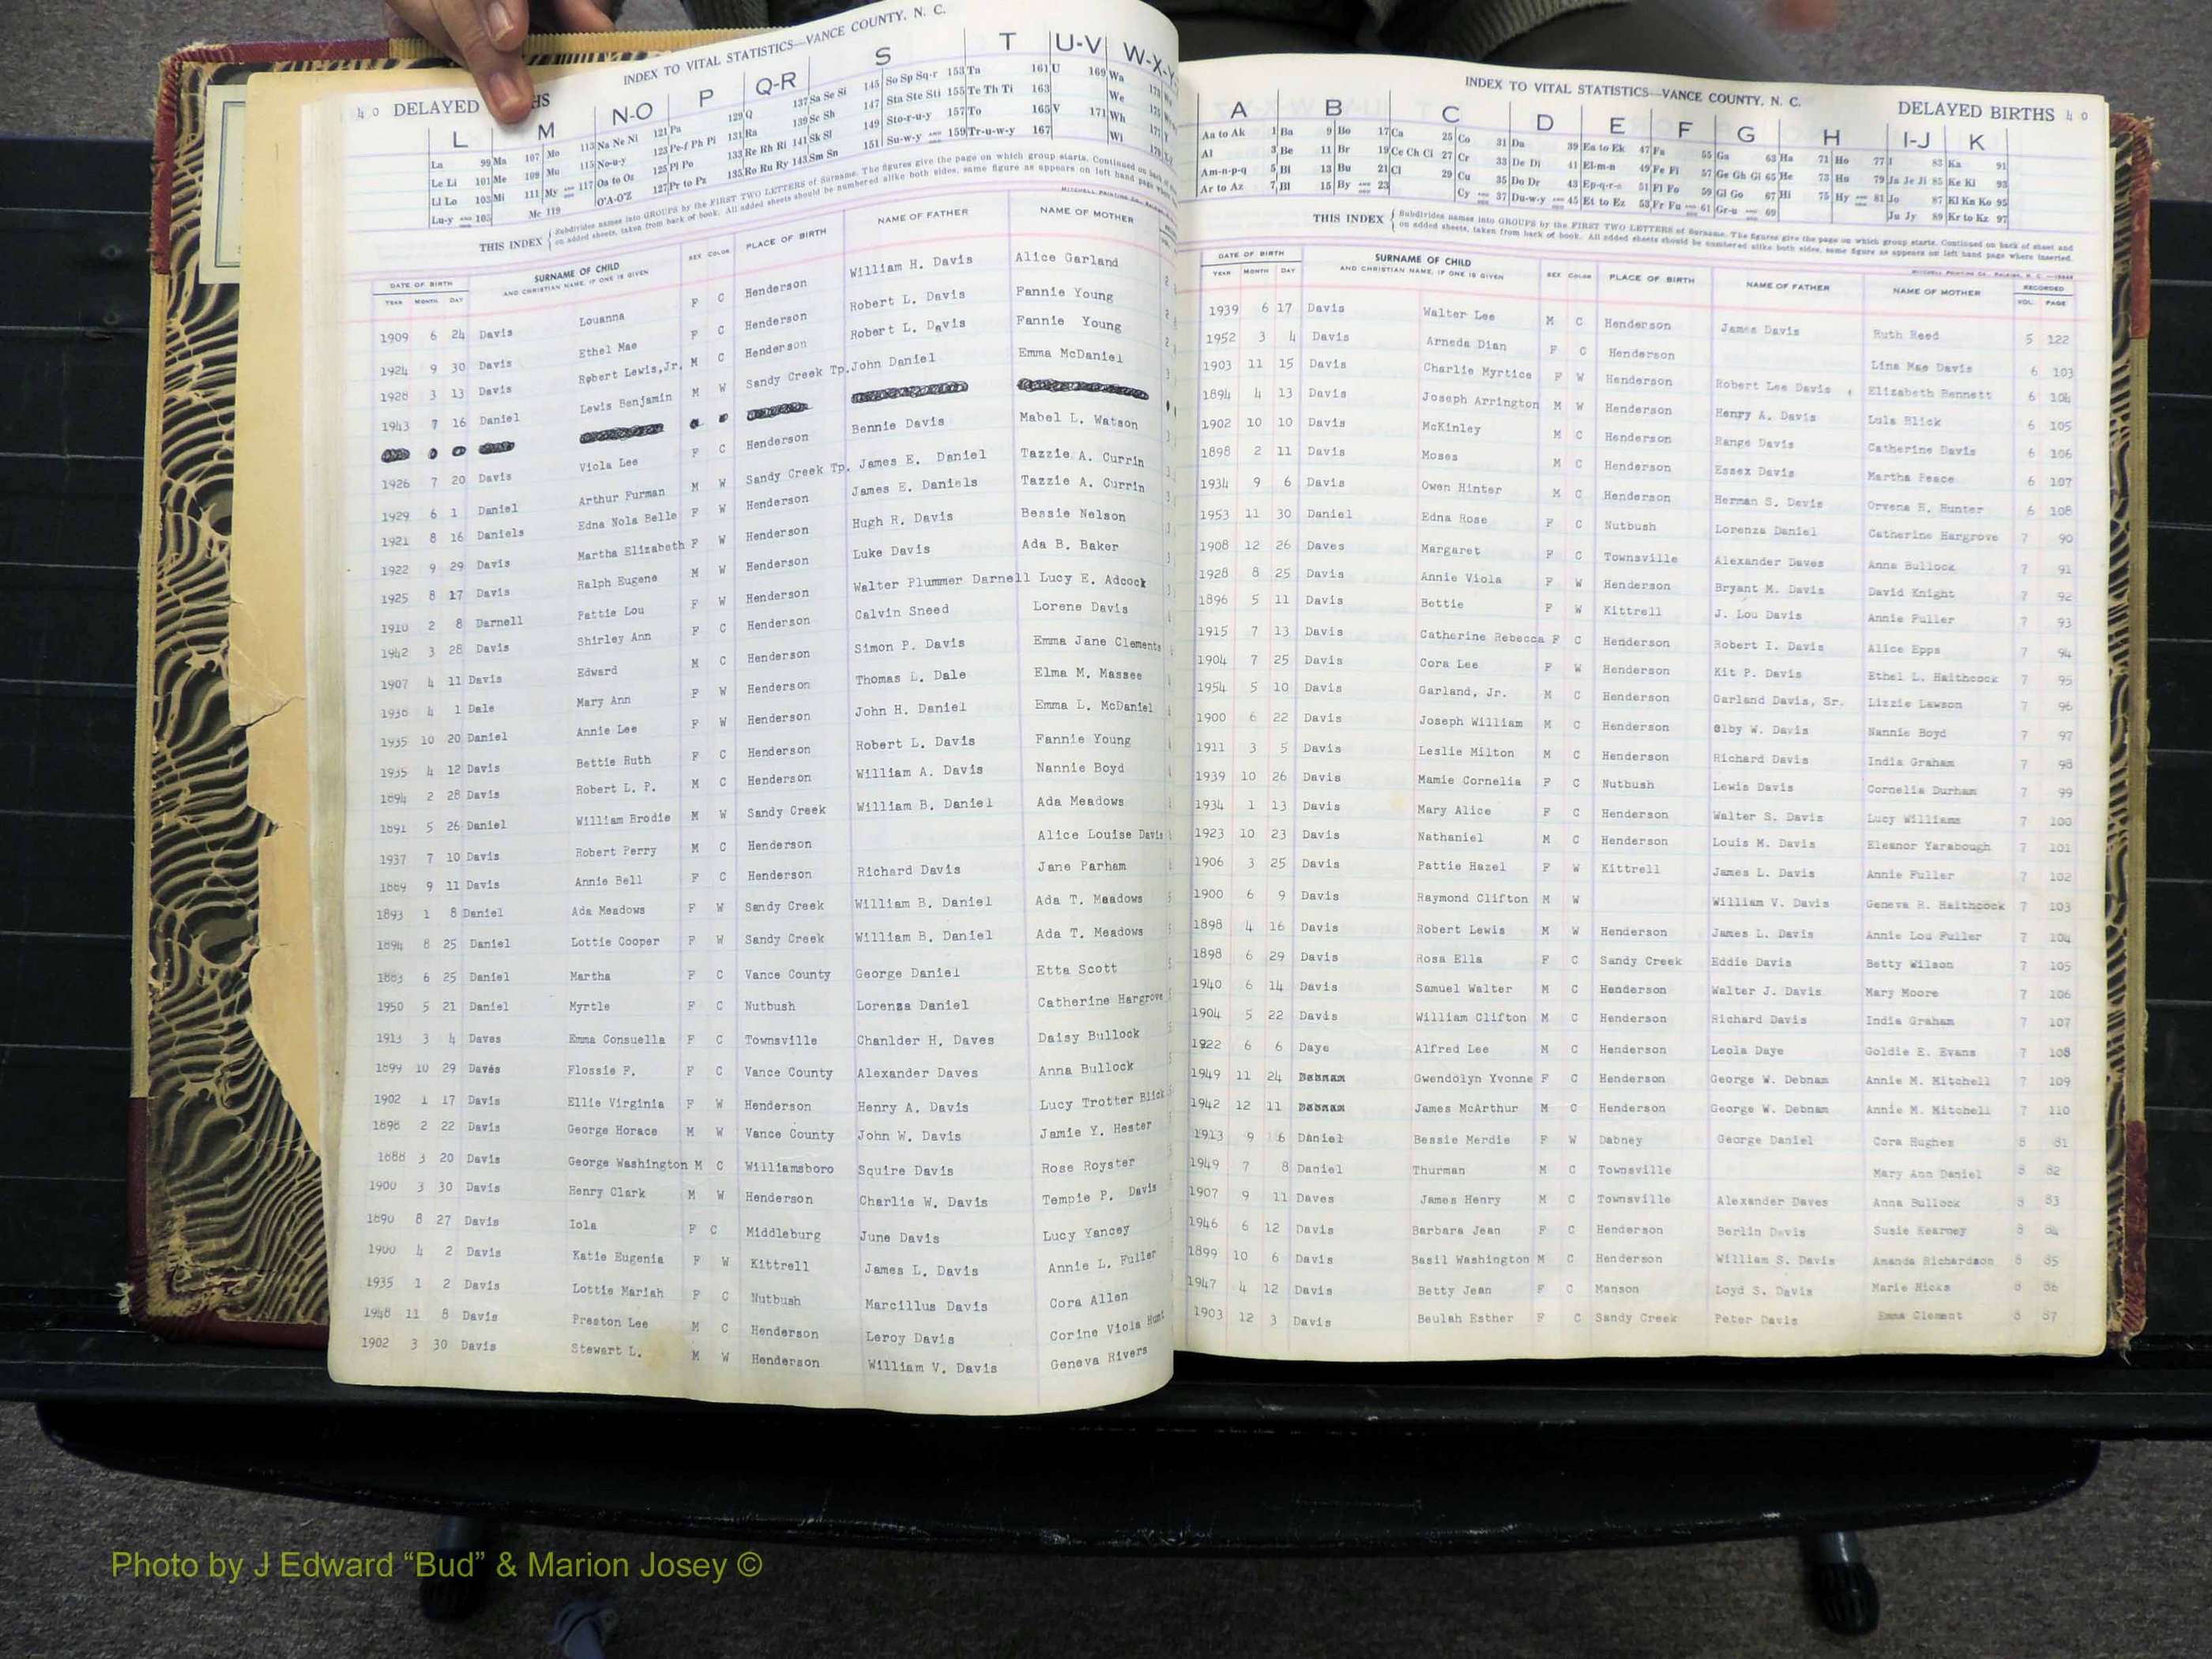 40 DELAYED HS INDEX TO VITAL STATISTICS—VANCE COUNTY, N. C.
L M N-O P Q-R S T U-V W-X-Y-
La 99 Ma 107 Mo 113 Na Ne Ni 121 Pa 129 Q 137 Sa Se Si 145 So Sp Sq-r 153 Ta 161 U 169 Wa
Le Li 101 Me 109 Mu 115 No-u-y 123 Pe-f Ph Pi 131 Ra 139 Sc Sh 147 Sta Ste Sti 155 Te Th Ti 163 We
Ll Lo 103 Mi 111 My AND 117 Oa to Oz 125 Pl Po 133 Re Rh Ri 141 Sk Sl 149 Sto-r-u-y 157 To 165 V 171 Wh
Lu-y AND 105 Mc 119 O'A-O'Z 127 Pr to Pz 135 Ro Ru Ry 143 Sm Sn 151 Su-w-y AND 159 Tr-u-w-y 167 Wi
THIS INDEX { Subdivides names into GROUPS by the FIRST TWO LETTERS of Surname. The figures give the page on which group starts. Continued on back of
on added sheets, taken from back of book. All added sheets should be numbered alike both sides, same figure as appears on left hand page
DATE OF BIRTH SURNAME OF CHILD SEX COLOR PLACE OF BIRTH NAME OF FATHER NAME OF MOTHER
YEAR MONTH DAY AND CHRISTIAN NAME, IF ONE IS GIVEN
1909 6 24 Davis Louanna F C Henderson William H. Davis Alice Garland
1924 9 30 Davis Ethel Mae F C Henderson Robert L. Davis Fannie Young
1928 3 13 Davis Robert Lewis, Jr. M C Henderson Robert L. Davis Fannie Young
1943 7 16 Daniel Lewis Benjamin M W Sandy Creek Tp. John Daniel Emma McDaniel
1926 7 20 Davis Viola Lee F C Henderson Bennie Davis Mabel L. Watson
1929 6 1 Daniel Arthur Furman M W Sandy Creek Tp. James E. Daniel Tazzie A. Currin
1921 8 16 Daniels Edna Nola Belle F W Henderson James E. Daniels Tazzie A. Currin
1922 9 29 Davis Martha Elizabeth F W Henderson Hugh R. Davis Bessie Nelson
1925 8 17 Davis Ralph Eugene M W Henderson Luke Davis Ada B. Baker
1910 2 8 Darnell Pattie Lou F W Henderson Walter Plummer Darnell Lucy E. Adcock
1942 3 28 Davis Shirley Ann F C Henderson Calvin Sneed Lorene Davis
1907 4 11 Davis Edward M C Henderson Simon P. Davis Emma Jane Clements
1938 4 1 Dale Mary Ann F W Henderson Thomas L. Dale Elma M. Massee
1935 10 20 Daniel Annie Lee F W Henderson John H. Daniel Emma L. McDaniel
1935 4 12 Davis Bettie Ruth F C Henderson Robert L. Davis Fannie Young
1894 2 28 Davis Robert L. P. M C Henderson William A. Davis Nannie Boyd
1891 5 26 Daniel William Brodie M W Sandy Creek William B. Daniel Ada Meadows
1937 7 10 Davis Robert Perry M C Henderson Alice Louise Davis
1889 9 11 Davis Annie Bell F C Henderson Richard Davis Jane Parham
1893 1 8 Daniel Ada Meadows F W Sandy Creek William B. Daniel Ada T. Meadows
1894 8 25 Daniel Lottie Cooper F W Sandy Creek William B. Daniel Ada T. Meadows
1883 6 25 Daniel Martha F C Vance County George Daniel Etta Scott
1950 5 21 Daniel Myrtle F C Nutbush Lorenza Daniel Catherine Hargrove
1913 3 4 Daves Emma Consuella F C Townsville Chanlder H. Daves Daisy Bullock
1899 10 29 Daves Flossie F. F C Vance County Alexander Daves Anna Bullock
1902 1 17 Davis Ellie Virginia F W Henderson Henry A. Davis Lucy Trotter Blick
1898 2 22 Davis George Horace M W Vance County John W. Davis Jamie Y. Hester
1888 3 20 Davis George Washington M C Williamsboro Squire Davis Rose Royster
1900 3 30 Davis Henry Clark M W Henderson Charlie W. Davis Tempie P. Davis
1890 8 27 Davis Iola F C Middleburg June Davis Lucy Yancey
1900 4 2 Davis Katie Eugenia F W Kittrell James L. Davis Annie L. Fuller
1935 1 2 Davis Lottie Mariah F C Nutbush Marcillus Davis Cora Allen
1948 11 8 Davis Preston Lee M C Henderson Leroy Davis Corine Viola Hunt
1902 3 30 Davis Stewart L. M W Henderson William V. Davis Geneva Rivers
INDEX TO VITAL STATISTICS—VANCE COUNTY, N. C. DELAYED BIRTHS 40
A B C D E F G H I-J K
Aa to Ak 1 Ba 9 Bo 17 Ca 25 Co 31 Da 39 Ea to Ek 47 Fa 55 Ga 63 Ha 71 Ho 77 I 83 Ka 91
Al 3 Be 11 Br 19 Ce Ch Ci 27 Cr 33 De Di 41 El-m-n 49 Fe Fi 57 Ge Gh Gi 65 He 73 Hu 79 Ja Je Ji 85 Ke Ki 93
Am-n-p-q 5 Bi 13 Bu 21 Cl 29 Cu 35 Do Dr 43 Ep-q-r-s 51 Fl Fo 59 Gl Go 67 Hi 75 Hy AND 81 Jo 87 Kl Kn Ko 95
Ar to Az 7 Bl 15 By AND 23 Cy AND 37 Du-w-y AND 45 Et to Ez 53 Fr Fu AND 61 Gr-u AND 69 Ju Jy 89 Kr to Kz 97
THIS INDEX { Subdivides names into GROUPS by the FIRST TWO LETTERS of Surname. The figures give the page on which group starts. Continued on back of sheet and
on added sheets, taken from back of book. All added sheets should be numbered alike both sides, same figure as appears on left hand page where inserted.
DATE OF BIRTH SURNAME OF CHILD SEX COLOR PLACE OF BIRTH NAME OF FATHER NAME OF MOTHER RECORDED
YEAR MONTH DAY AND CHRISTIAN NAME, IF ONE IS GIVEN VOL. PAGE
1939 6 17 Davis Walter Lee M C Henderson James Davis Ruth Reed 5 122
1952 3 4 Davis Arneda Dian F C Henderson Lina Mae Davis 6 103
1903 11 15 Davis Charlie Myrtice F W Henderson Robert Lee Davis Elizabeth Bennett 6 104
1894 4 13 Davis Joseph Arrington M W Henderson Henry A. Davis Lula Blick 6 105
1902 10 10 Davis McKinley M C Henderson Range Davis Catherine Davis 6 106
1898 2 11 Davis Moses M C Henderson Essex Davis Martha Peace 6 107
1934 9 6 Davis Owen Hinter M C Henderson Herman S. Davis Orvena H. Hunter 6 108
1953 11 30 Daniel Edna Rose F C Nutbush Lorenza Daniel Catherine Hargrove 7 90
1908 12 26 Daves Margaret F C Townsville Alexander Daves Anna Bullock 7 91
1928 8 25 Davis Annie Viola F W Henderson Bryant M. Davis David Knight 7 92
1896 5 11 Davis Bettie F W Kittrell J. Lou Davis Annie Fuller 7 93
1915 7 13 Davis Catherine Rebecca F C Henderson Robert I. Davis Alice Epps 7 94
1904 7 25 Davis Cora Lee F W Henderson Kit P. Davis Ethel L. Haithcock 7 95
1954 5 10 Davis Garland, Jr. M C Henderson Garland Davis, Sr. Lizzie Lawson 7 96
1900 6 22 Davis Joseph William M C Henderson Olby W. Davis Nannie Boyd 7 97
1911 3 5 Davis Leslie Milton M C Henderson Richard Davis India Graham 7 98
1939 10 26 Davis Mamie Cornelia F C Nutbush Lewis Davis Cornelia Durham 7 99
1934 1 13 Davis Mary Alice F C Henderson Walter S. Davis Lucy Williams 7 100
1923 10 23 Davis Nathaniel M C Henderson Louis M. Davis Eleanor Yarabough 7 101
1906 3 25 Davis Pattie Hazel F W Kittrell James L. Davis Annie Fuller 7 102
1900 6 9 Davis Raymond Clifton M W William V. Davis Geneva R. Haithcock 7 103
1898 4 16 Davis Robert Lewis M W Henderson James L. Davis Annie Lou Fuller 7 104
1898 6 29 Davis Rosa Ella F C Sandy Creek Eddie Davis Betty Wilson 7 105
1940 6 14 Davis Samuel Walter M C Henderson Walter J. Davis Mary Moore 7 106
1904 5 22 Davis William Clifton M C Henderson Richard Davis India Graham 7 107
1922 6 6 Daye Alfred Lee M C Henderson Leola Daye Goldie E. Evans 7 108
1949 11 24 Debnam Gwendolyn Yvonne F C Henderson George W. Debnam Annie M. Mitchell 7 109
1942 12 11 Debnam James McArthur M C Henderson George W. Debnam Annie M. Mitchell 7 110
1913 9 6 Daniel Bessie Merdie F W Dabney George Daniel Cora Hughes 8 81
1949 7 8 Daniel Thurman M C Townsville Mary Ann Daniel 8 82
1907 9 11 Daves James Henry M C Townsville Alexander Daves Anna Bullock 8 83
1946 6 12 Davis Barbara Jean F C Henderson Berlin Davis Susie Kearney 8 84
1899 10 6 Davis Basil Washington M C Henderson William S. Davis Amanda Richardson 8 85
1947 4 12 Davis Betty Jean F C Manson Loyd S. Davis Marie Hicks 8 86
1903 12 3 Davis Beulah Esther F C Sandy Creek Peter Davis Emma Clement 8 87
Photo by J Edward “Bud” & Marion Josey ©